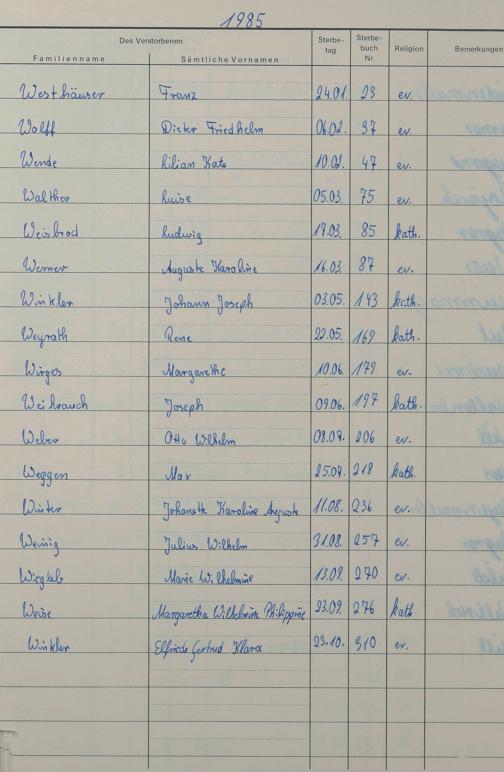 1985
Des Verstorbenen Sterbe- Sterbe- Religion Bemerkungen
Familienname Sämtliche Vornamen tag buch Nr.
Westhäuser Franz 24.01. 23 ev.
Wolff Dieter Friedhelm 06.02. 37 ev.
Wende Lilian Kate 10.02. 47 ev.
Walther Luise 05.03. 75 ev.
Weisbrod Ludwig 17.03. 85 kath.
Werner Auguste Karoline 16.03. 87 ev.
Winkler Johann Joseph 03.05. 143 kath.
Weyrath Rene 22.05. 169 kath.
Wirges Margarethe 10.06. 179 ev.
Weihrauch Joseph 09.06. 197 kath.
Weber Otto Wilhelm 08.07. 206 ev.
Weggen Max 25.07. 218 kath.
Winter Johanette Karoline Auguste 11.08. 236 ev.
Weinig Julius Wilhelm 31.08. 257 ev.
Marie Wilhelmine 13.09. 270 ev.
Weise Margaretha Wilhelmine Philippine 23.09. 276 kath
Winkler Elfriede Gertrud Klara 23.10. 310 ev.